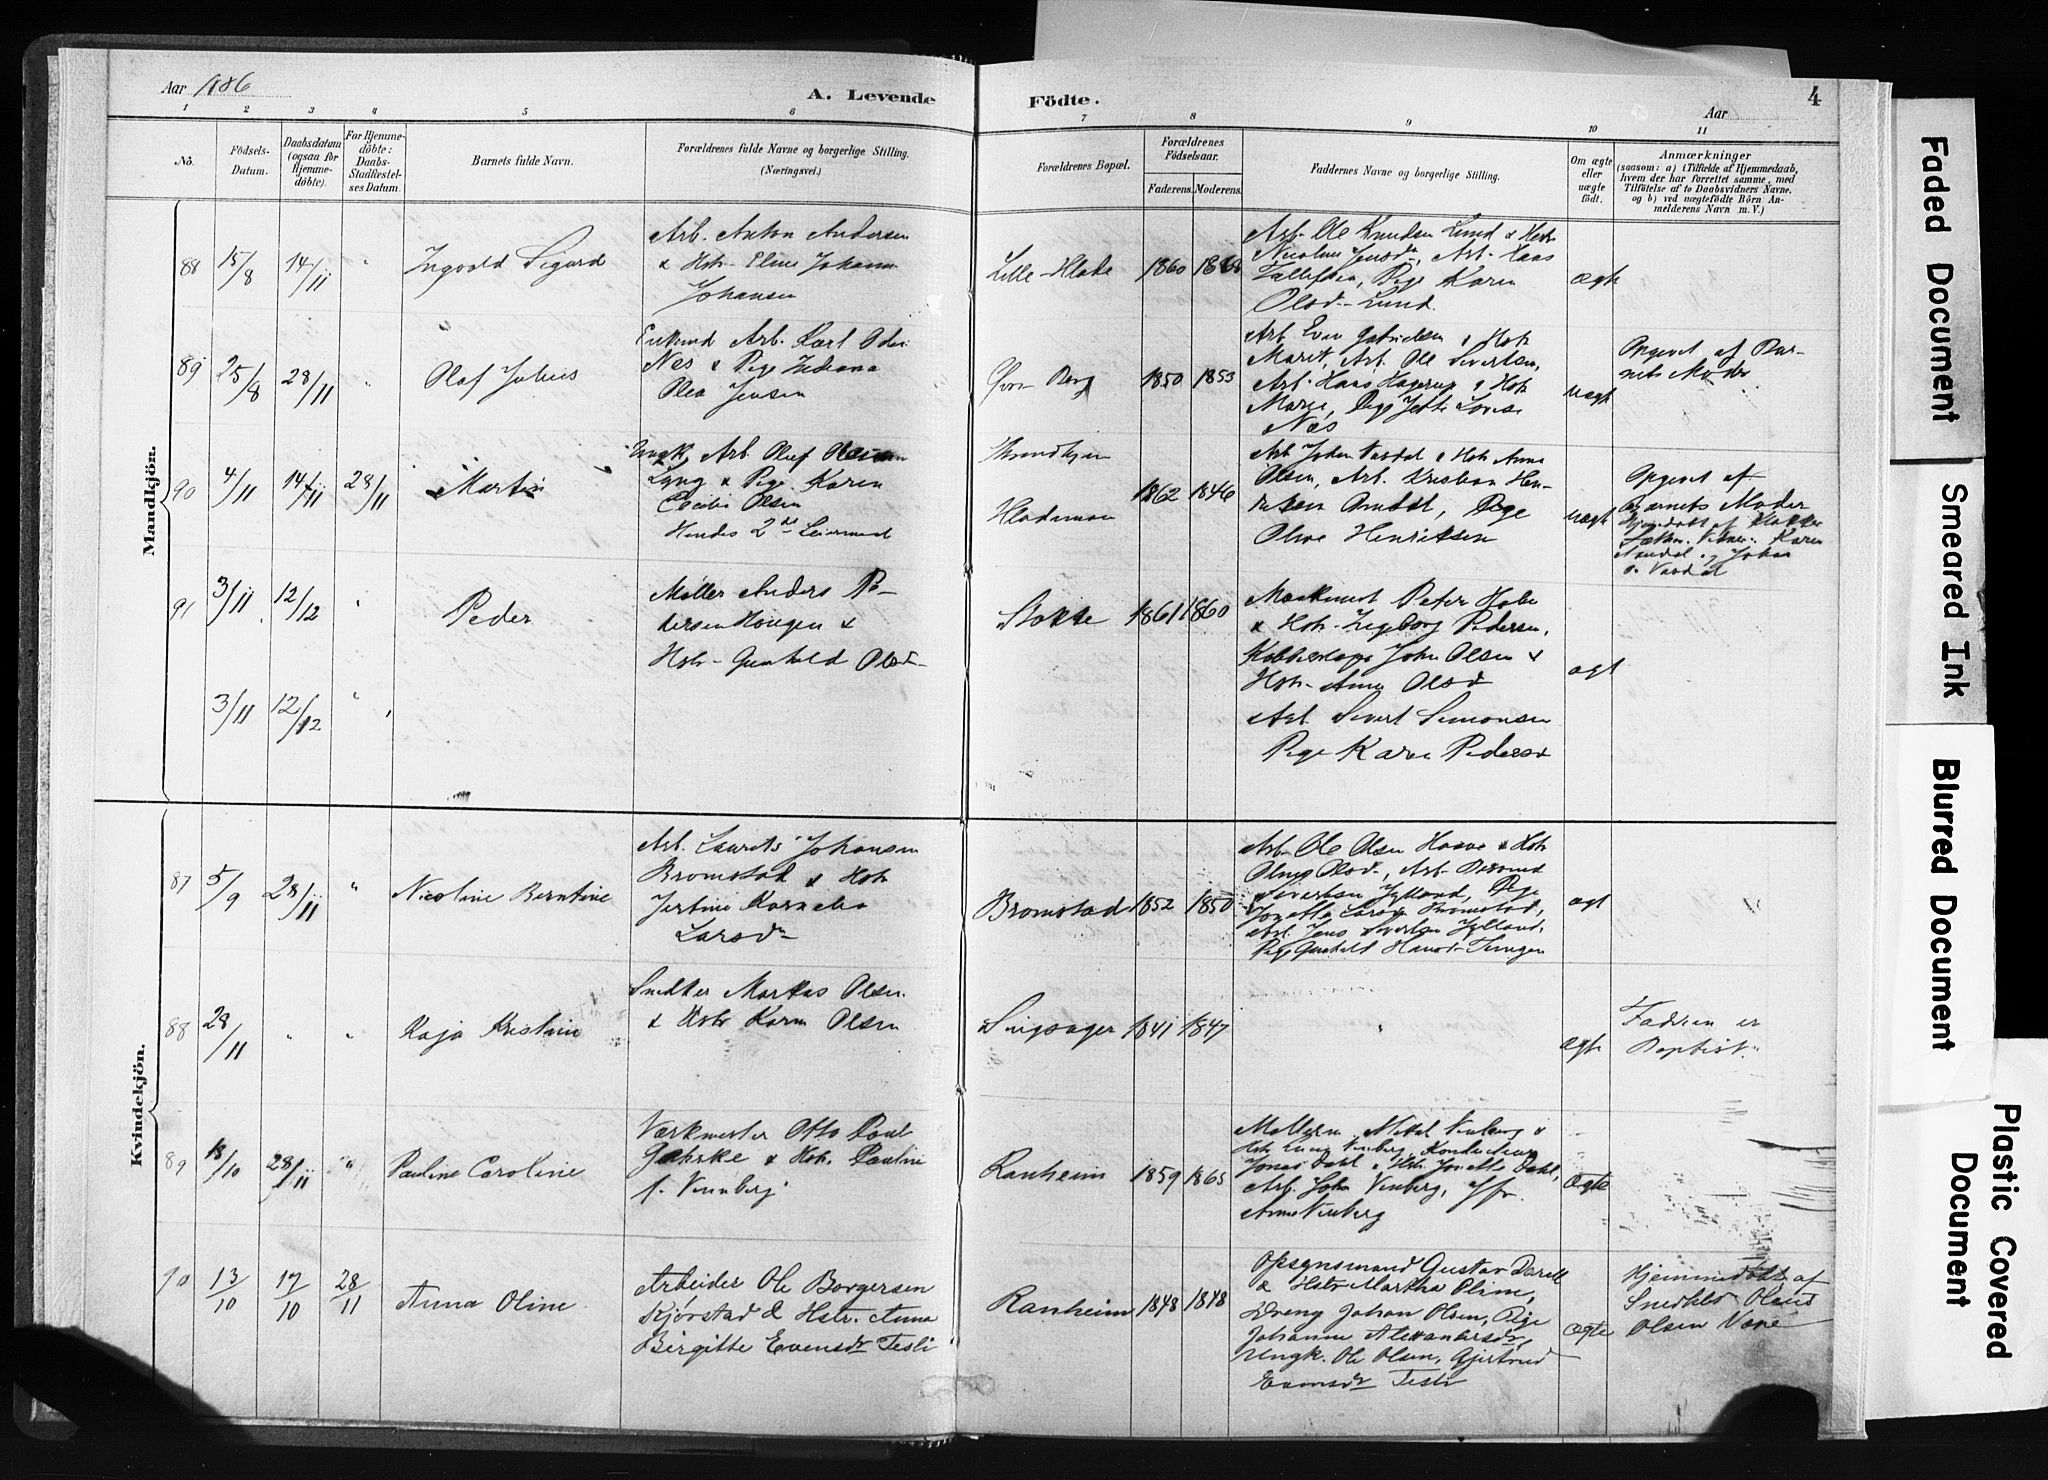 Aar 1886
A. Levende
Födte.
Aar
4
1 2 3 4 5 6 7 8 9 10 11
No.
Födsels-
Datum.
Daabsdatum
(ogsaa for
Hjemme-
döbte).
For Hjemme-
döbte:
Daabs-
Stadfæstel-
ses Datum.
Barnets fulde Navn.
Forældrenes fulde Navne og borgerlige Stilling.
(Næringsvei.)
Forældrenes Bopæl.
Forældrenes
Födselsaar.
Faderens. Moderens.
Faddernes Navne og borgerlige Stilling.
Om ægte
eller
uægte
födt.
Anmærkninger
(saasom: a) i Tilfælde af Hjemmedaab,
hvem der har forrettet samme, med
Tilföielse af to Daabsvidners Navne.
og b) ved uægtefödte Börn An-
melderens Navn m. V.)
Mandkjön.
88 15/8 14/11 " Ingvald Sigurd
Arb. Anton Andersen
& Hstr. Eline Johanna
Johansen
Lille-Hlade 1860
Arb. Ole Knudsen Lund & Hstr
Nicoline Jensd., Arb.
Pige Karen
Olsd. Lund.
ægte
89 25/8 28/11 " Olaf Julius
Enkemd Arb. Karl
Næs & Pige Indiana
Olea Jensen
Berg 1850 1853
Arb. Even Gabrielsen & Hstr
Marit, Arb. Ole Sivertsen,
Arb. Haas Hagerup & Hstr
Marie, Pige Jette Lovise
Næs
uægt
Opgivet af Bar-
nets Moder
90 4/11 14/11 28/11 Martin
Ungk. Arb Oluf
Lyng & Pige Karen
Cecilie Olsen
Hendes 2det Leiermaal
Throndhjem
Hlademoen
1862 1846
Arb Johan Vasdal & Hstr Anna
Olsen, Arb. Kristian Hen-
riksen Pige
Oline Henriksen
uægt
Opgivet af
Barnets Moder
Hjemdøbt af Klokker
Karen
og Johan
Vasdal
91 3/11 12/12 " Peder
Møller Anders Pe-
dersen Haugen &
Hstr. Gunhild Olsd.
Stokke 1861 1860
Peter
& Hstr. Ingeborg Pedersen,
John Olsen &
Hstr. Anne Olsd
Arb. Sivert Simonsen
Pige Karen Pedersd
ægt
3/11 12/12 "
Kvindekjön.
87 5/9 28/11 " Nicoline Berntine
Arb. Laurits Johansen
Bromstad & Hstr
Jertine Kornelia
Larsdr
Bromstad 1852 1850
Arb. Ole Olsen Haave & Hstr
Olsd., Arb.
Sivertsen Jylland, Pige
Jonetta Larsd Bromstad,
Arb. Jens Sivertsen Jylland,
Pige Gunhild
ægt
88 28/11 " " Kaja Kristine
Snedker Markus Olsen
& Hstr Karen Olsen
Singsager 1841 1847
"
ægte
Faderen er
Baptist.
89 18/10 28/11 " Pauline Caroline
Værkmester Otto Paul
Gehrke & Hstr. Pauline
f. Vennberg
Ranheim 1859 1865
Møllersv.
Jonas Dahl & Hstr Jonetta Dahl,
Arb. John Venberg, Jfr.
Anne Venberg
Ægte
90 13/10 17/10 28/11 Anna Oline
Arbeider Ole Borgersen
Kjørstad & Hstr. Anna
Birgitte Evensdr Tesli
Ranheim 1848 1848
Opsynsmand Gustav
& Hstr Martha Oline,
Dreng Johan Olsen, Pige
Johanna Alexandersdr,
Ungk. Ole Olsen, Gjertrud
Evensdr Tesli
Ægte
Hjemmedøbt af
Snedker
Olsen
Faded Document
Smeared Ink
Blurred Document
Plastic Covered
Document